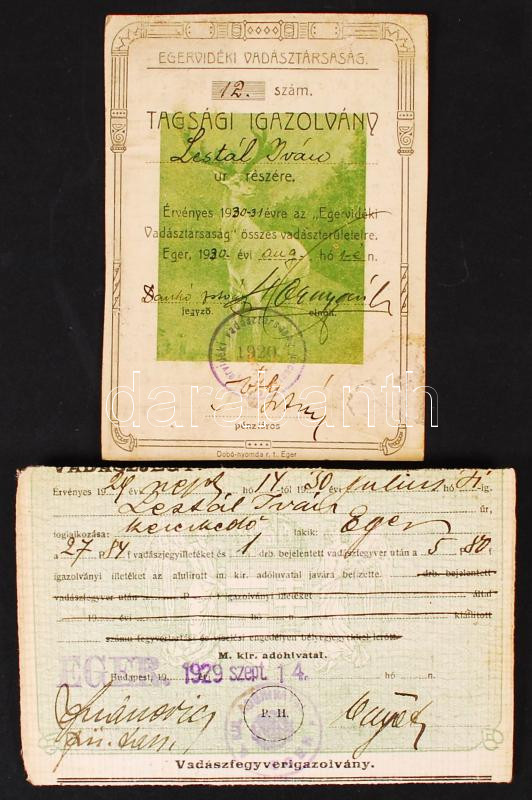 EGERVIDÉKI VADÁSZTÁRSASÁG.
12. szám.
TAGSÁGI IGAZOLVÁNY
Lestál Iván
úr részére.
Érvényes 1930-31 évre az „Egervidéki
Vadásztársaság" összes vadászterületeire.
Eger, 1930. évi aug. hó 1-én.
jegyző. elnök.
1920
pénztáros
Dobó-nyomda r. t. Eger
darabanth
VADÁSZJEGY.
Érvényes 1929 szept hó 14-től 1930 július hó ig.
Lestál Iván úr,
foglalkozása: kereskedő lakik: Eger
a 27 P. 84 f vadászjegyilletéket és 1 drb. bejelentett vadászfegyver után a 5 P. 80
igazolványi illetéket az alulírott m. kir. adóhivatal javára befizette. drb. bejelentett
vadászfegyver után P igazolványi illetéket által
19 évi hó n kiállított
számú fegyvertartási és viselési engedélyen bélyegjegyekkel lerótt.
M. kir. adóhivatal.
EGER.
Budapest, 19 év 1929 szept 14. hó n.
P. H.
Vadászfegyverigazolvány.